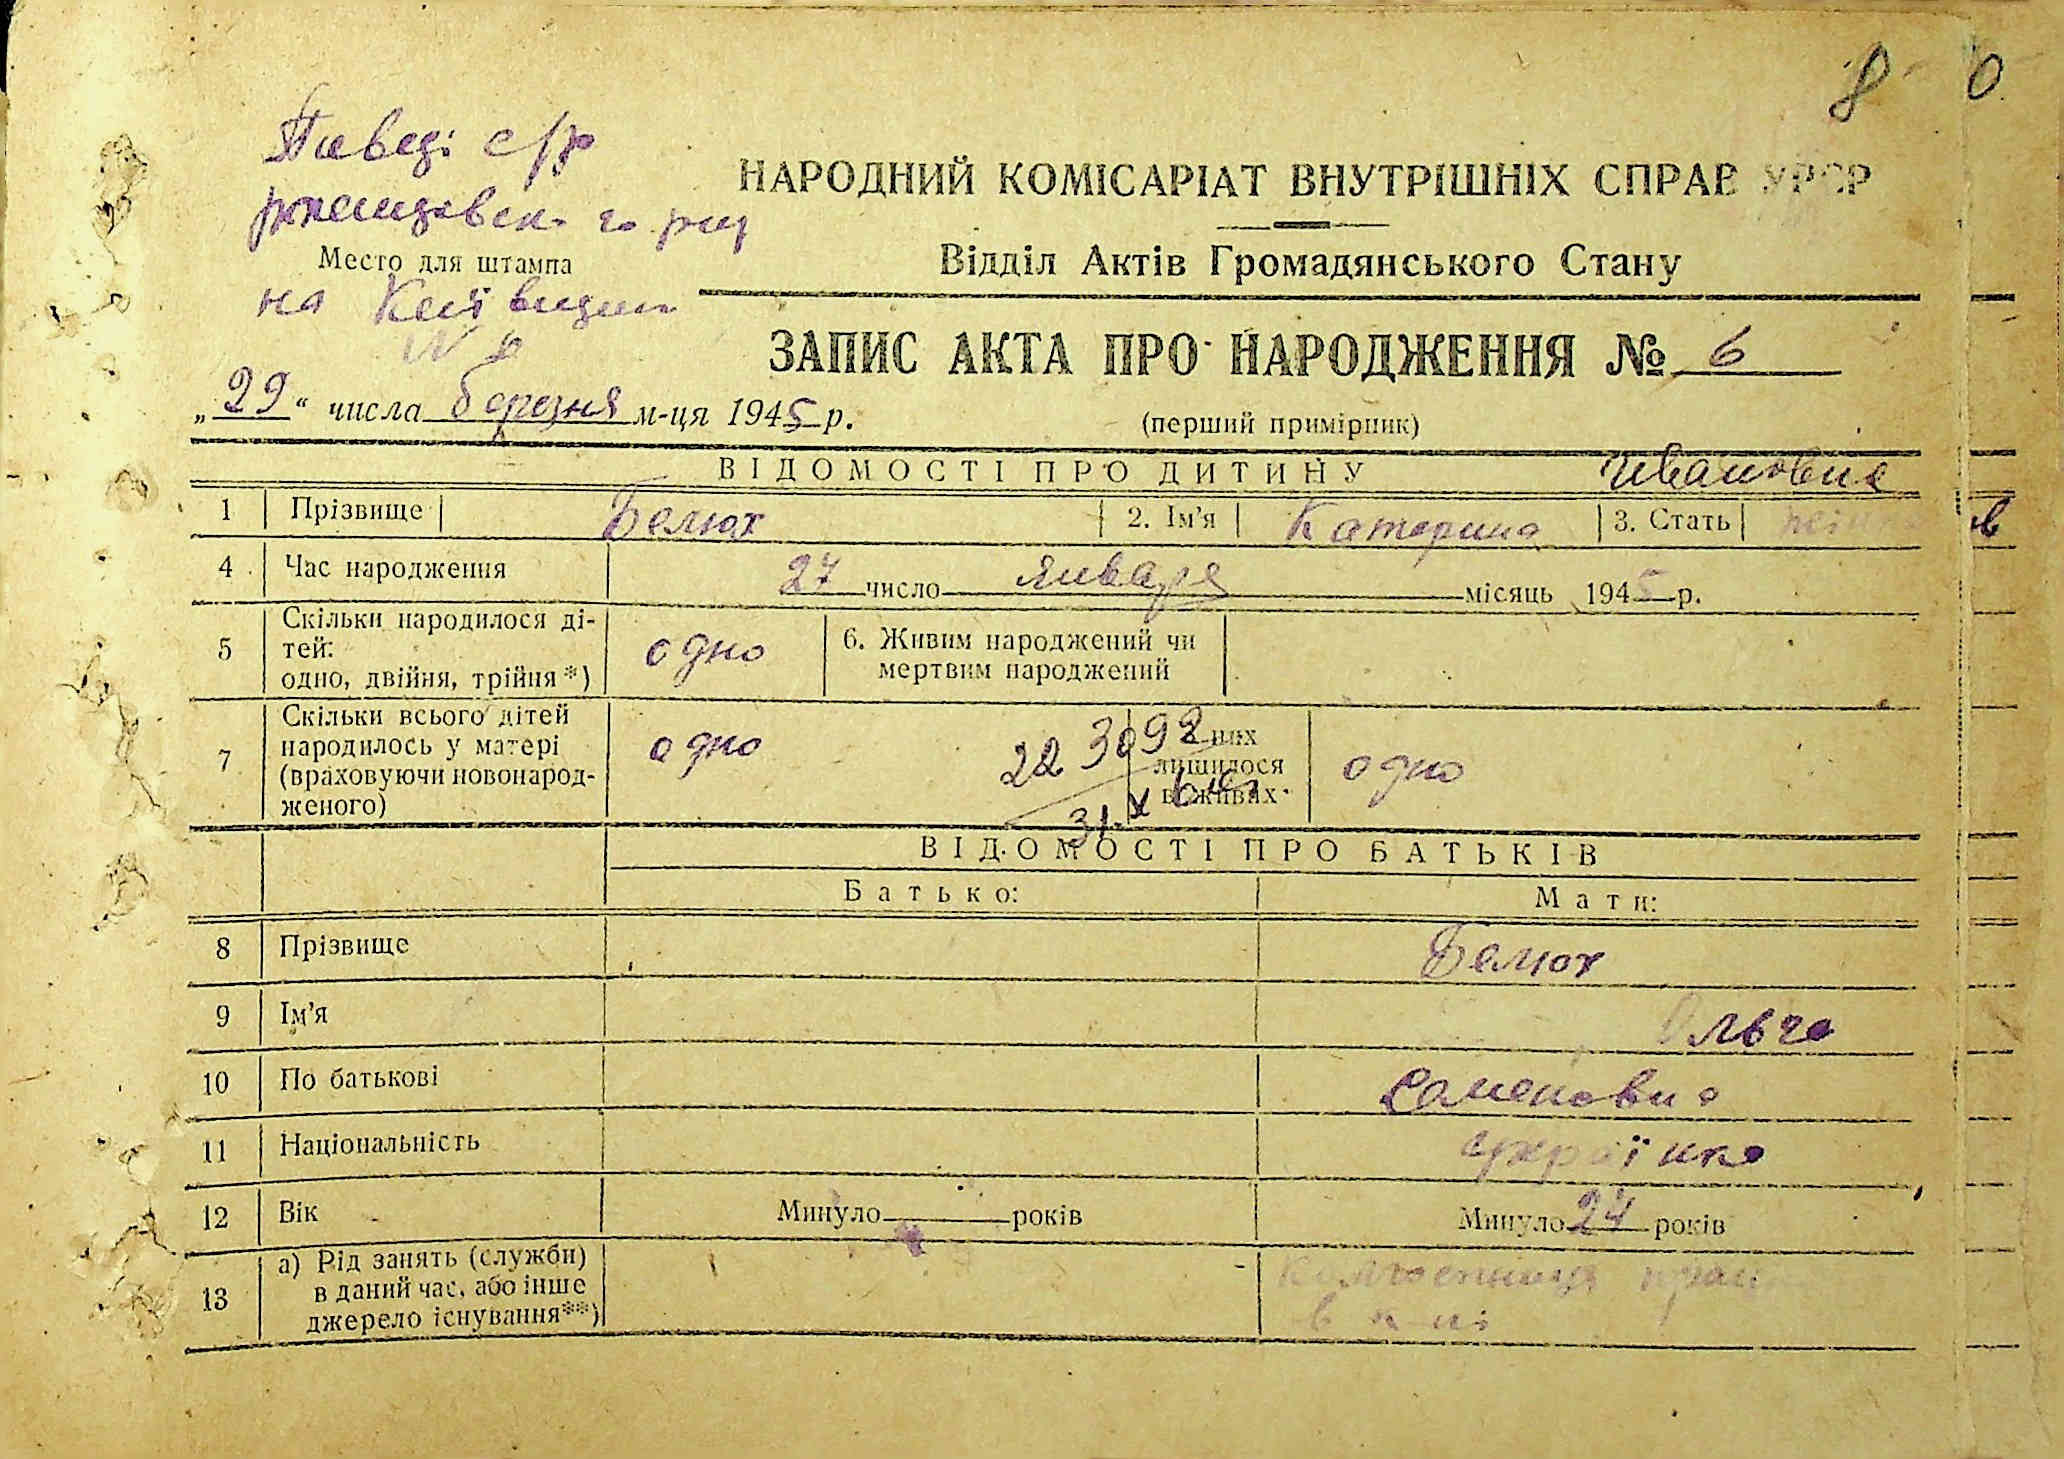 8
Півці с/р
ржищевсько го р-ну
НАРОДНИЙ КОМІСАРІАТ ВНУТРІШНІХ СПРАВ УРСР
Відділ Актів Громадянського Стану
Место для штампа
на Київщині
ЗАПИС АКТА ПРО НАРОДЖЕННЯ № 6
„29“ числа березня м-ця 1945 р.
(перший примірник)
ВІДОМОСТІ ПРО ДИТИНУ
Ивановна
1 Прізвище Белюх 2. Ім’я Катерина 3. Стать
4 Час народження 27 число января місяць 1945 р.
5 Скільки народилося ді-
тей:
одно, двійня, трійня*) одно 6. Живим народжений чи
мертвим народжений
7 Скільки всього дітей
народилось у матері
(враховуючи новонарод-
женого) одно
них
лишилося
в живих одно
ВІДОМОСТІ ПРО БАТЬКІВ
Батько: Мати:
8 Прізвище Белюх
9 Ім’я Ольга
10 По батькові Семеновна
11 Національність українка
12 Вік Минуло років Минуло 24 років
13 а) Рід занять (служби)
в даний час, або інше
джерело існування**) колгоспниця